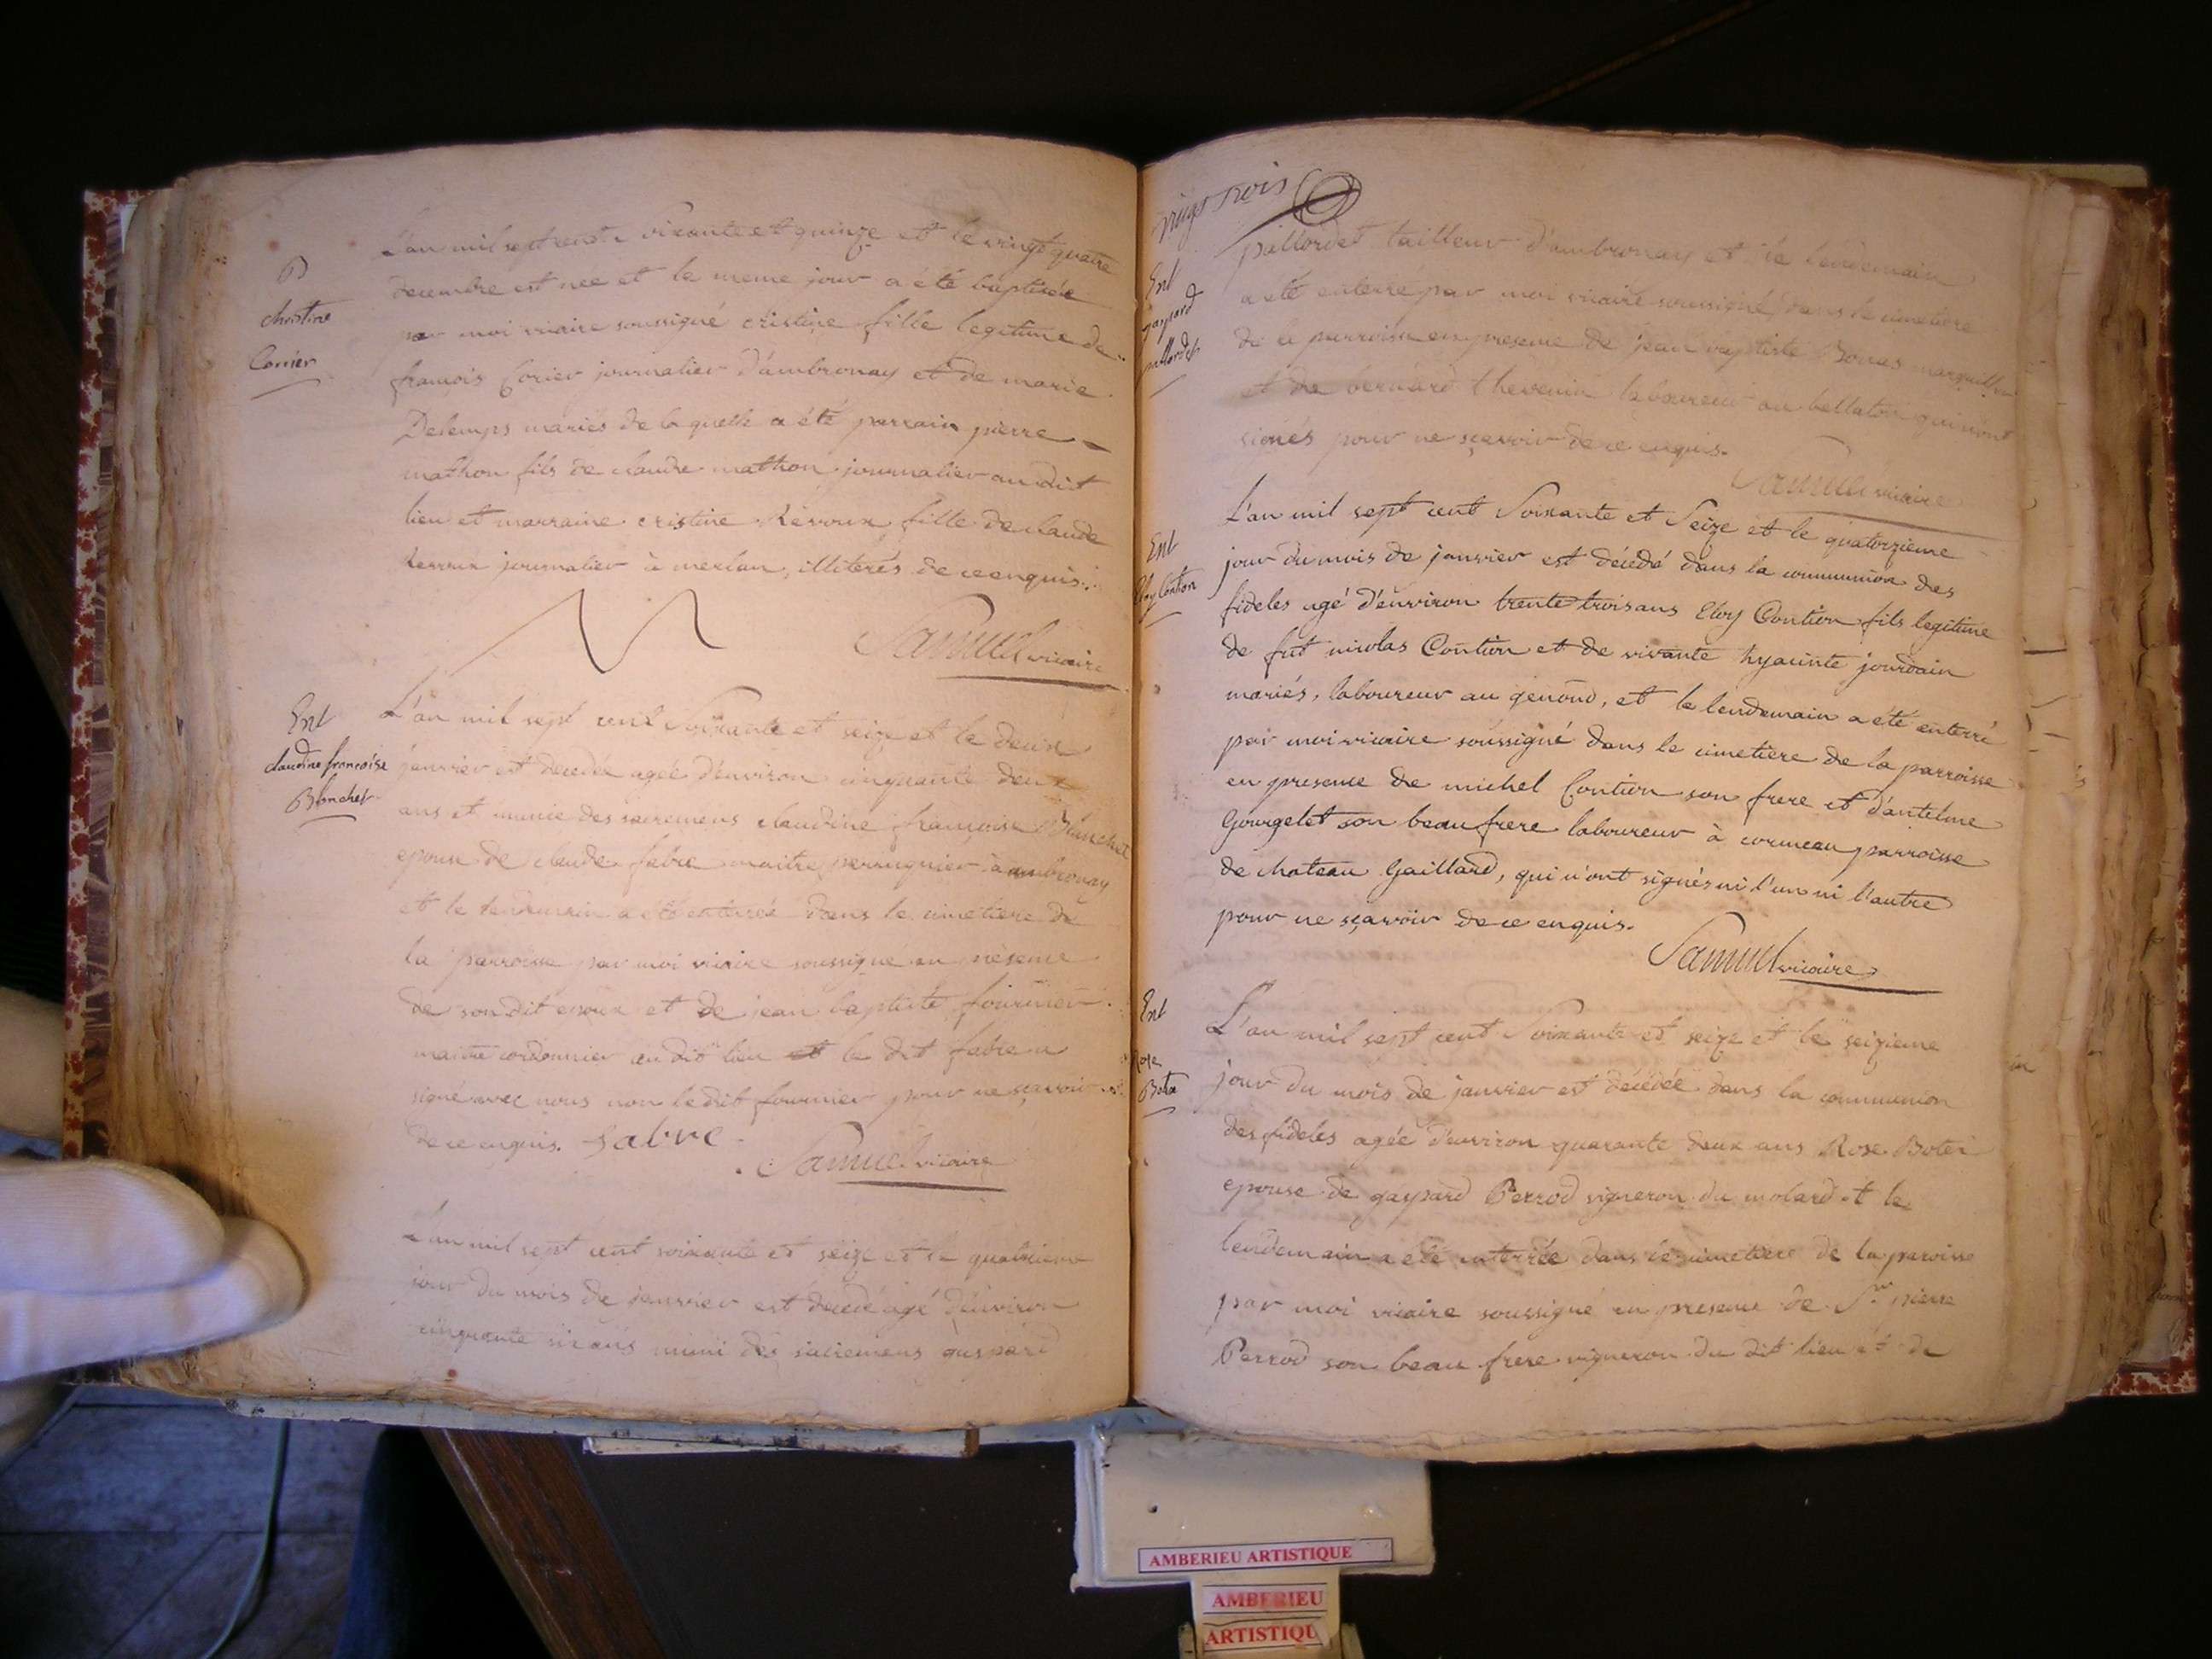 B
christine
Corrier
L'an mil sept cent soixante et quinze et le vingt quatre
decembre est née et le meme jour a été baptisée
par moi vicaire soussigné cristine fille legitime de
françois Corier journalier d'ambronay et de marie
Delemps mariés de laquelle a été parrain pierre
mathon fils de claude mathon journalier audit
lieu et marraine cristine Révoux fille de claude
Revoux journalier à merlan, illiterés de ce enquis.
Samuel vicaire
Ent
claudine francoise
Blanchet
L'an mil sept cent soixante et seize et le deux
janvier est decedée agée d'environ cinquante deux
ans et munie des sacremens claudine françoise Blanchet
epouse de claude fabre maitre perruquier à ambronay
et le lendemain a été enterrée dans le cimetiere de
la parroisse par moi vicaire soussigné en présence
de son dit epoux et de jean baptiste fournier
maitre cordonnier au dit lieu et le dit fabre a
signé avec nous non le dit fournier pour ne sçavoir
de ce enquis. fabre
Samuel vicaire
L'an mil sept cent soixante et seize et le quatrieme
jour du mois de janvier est decedé agé d'environ
cinquante six ans muni des sacremens gaspard
vingt trois
Ent
gaspard
pallordet
pallordet tailleur d'ambronay et le lendemain
a été enterré par moi vicaire soussigné dans le cimetiere
de la parroisse en presence de jean baptiste Bonas marguillier
et de bernard thevenin laboureur au bellaton qui n'ont
signés pour ne sçavoir de ce enquis.
Samuel vicaire
Ent
Eloy Contion
L'an mil sept cent Soixante et Seize et le quatorzieme
jour du mois de janvier est décédé dans la communion des
fideles agé d'environ trente trois ans Eloy Contion fils legitime
de fut nicolas Contion et de vivante hyacinte jourdain
mariés, laboureur au genoud, et le lendemain a été enterré
par moi vicaire soussigné dans le cimetiere de la parroisse
en presence de michel Contion son frere et d'antelme
Gourgelet son beau frere laboureur à cormeau parroisse
de chateau Gaillard, qui n'ont signés ni l'un ni l'autre
pour ne sçavoir de ce enquis.
Samuel vicaire
Ent
Rose
Botex
L'an mil sept cent soixante et seize et le seizieme
jour du mois de janvier est décédée dans la communion
des fideles agée d'environ quarante deux ans Rose Botex
epouse de gaspard Perrod vigneron du molard et le
lendemain a été enterrée dans le cimetiere de la paroisse
par moi vicaire soussigné en presence de Sr. pierre
Perrod son beau frere vigneron du dit lieu et de
AMBERIEU ARTISTIQUE
AMBERIEU
ARTISTIQU